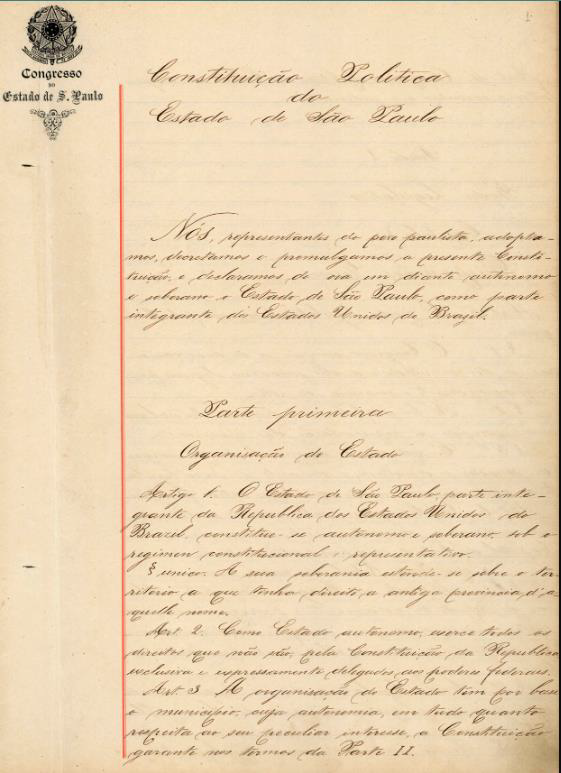 1
Congresso
DO
Estado de S. Paulo
Constituição Politica
do
Estado de São Paulo
Nós, representantes do povo paulista, adopta-
mos, decretamos e promulgamos a presente Consti-
tuição, e declaramos de ora em diante autonomo
e soberano o Estado de São Paulo, como parte
integrante dos Estados Unidos do Brazil.
Parte primeira
Organisação do Estado
Artigo 1. O Estado de São Paulo, parte inte-
grante da Republica dos Estados Unidos do
Brazil, constitue-se autonomo e soberano, sob o
regimen constitucional e representativo.
§ unico. A sua soberania estende-se sobre o ter-
ritorio a que tenha direito a antiga provincia d'a-
quelle nome.
Art. 2. Como Estado autonomo, exerce todos os
direitos que não são, pela Constituição da Republica
exclusiva e expressamente delegados aos poderes federaes.
Art. 3 A organisação do Estado tem por base
o municipio, cuja autonomia, em tudo quanto
respeita ao seu peculiar interesse, a Constituição
garante nos termos da Parte II.